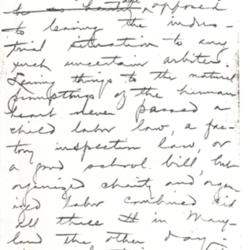 to leaving the indus-
trial situation to any
such uncertain arbiter.
Leaving things to the natural
promptings of the human
heart never passed a
child labor law, a fac-
tory inspection law, or
a good school bill, but
organized charity and organ-
ized labor combined did
all three in Mary-
land the other day